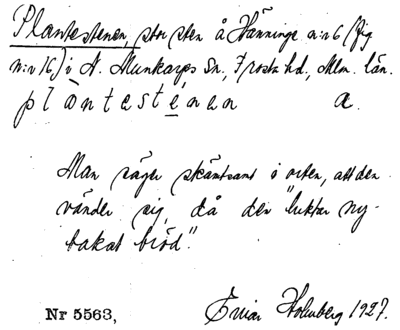 Plantestenen, stor sten å Hänninge n:r 6 (fig
n:r 16) i N. Munkarps Sn, Frosta hd, Mlm. län.
plàntestẹ́nen a.
Man säger skämtsamt i orten, att den
vänder sig, då den "luktar ny-
bakat bröd".
Nr 5563, Ewin Holmberg 1927.